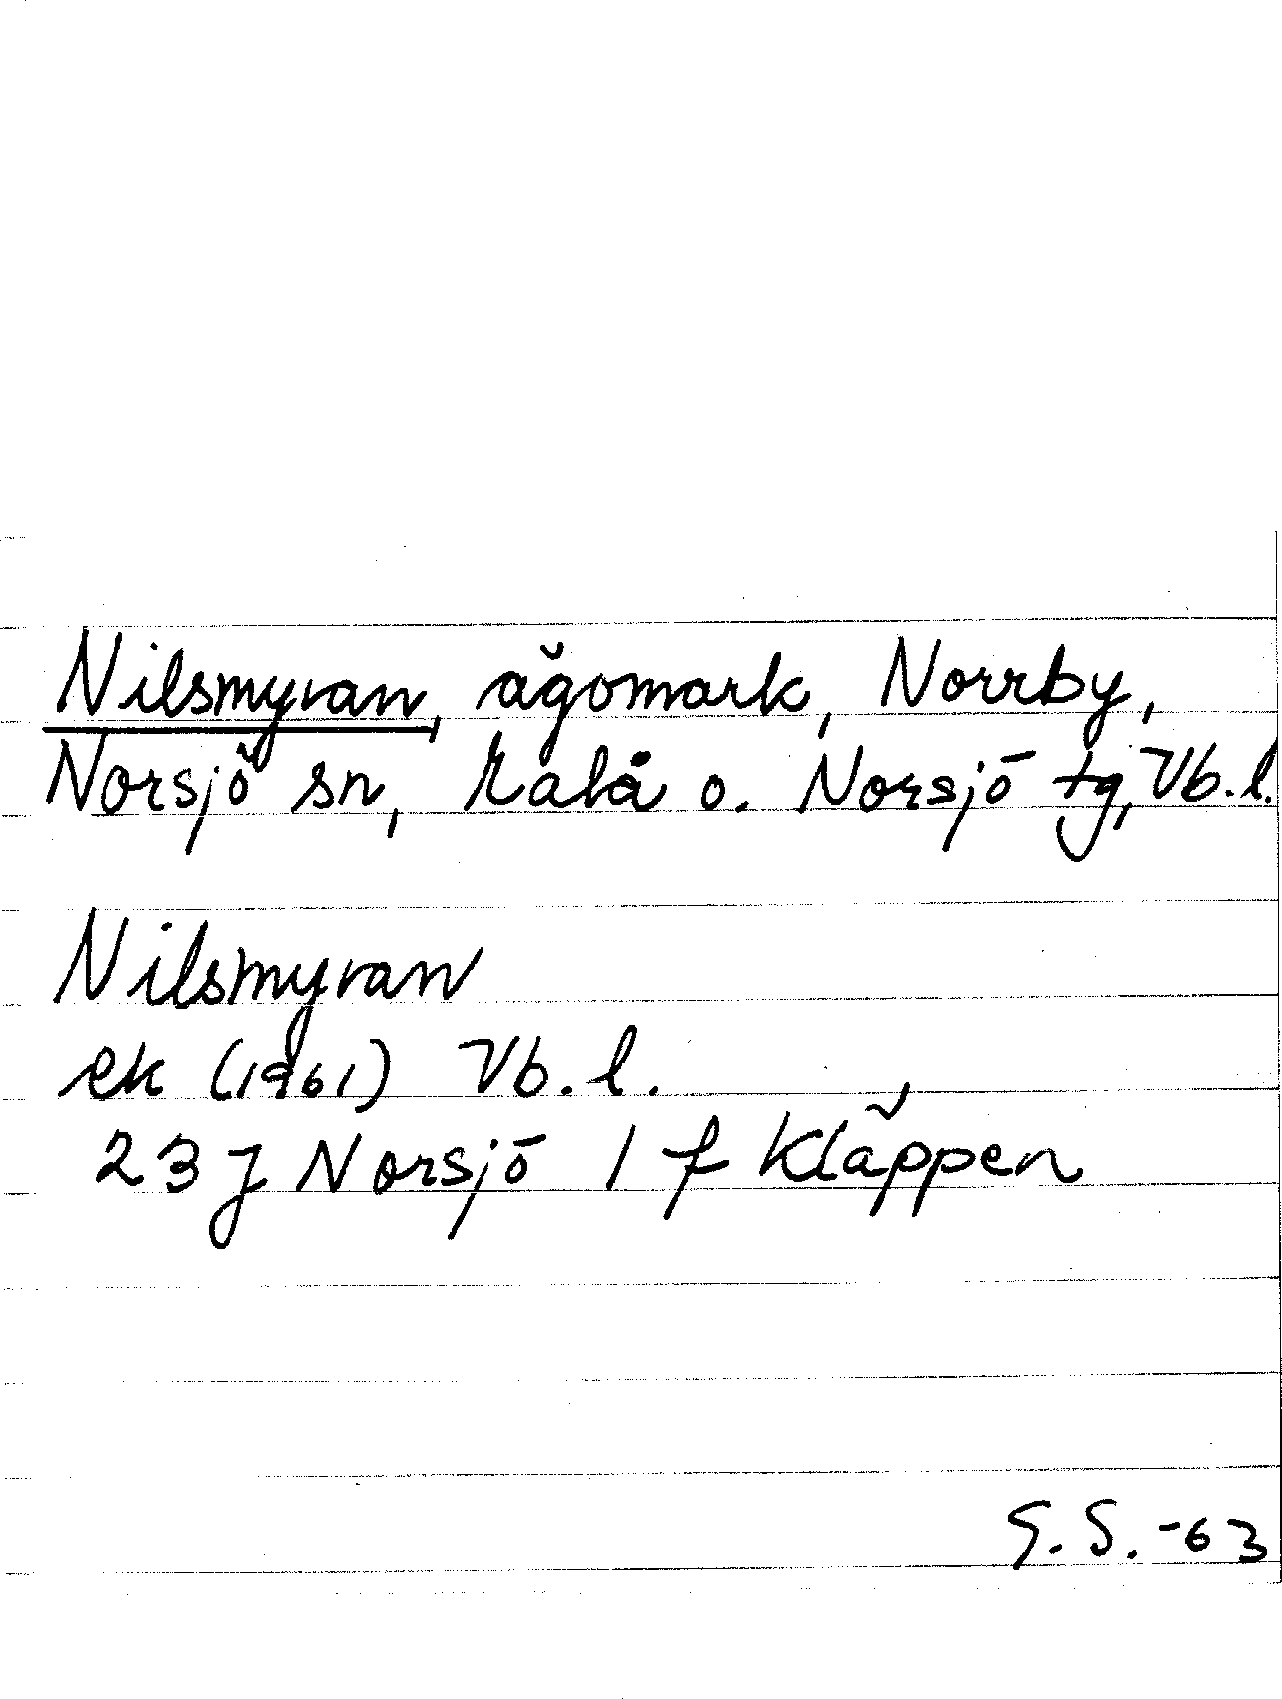 Nilsmyran, ägomark, Norrby,
Norsjö sn, Malå o. Norsjö tg, Vb.l.
Nilsmyran
ek (1961) Vb.l.
23 J Norsjö 1 f Kläppen
G.S.-63